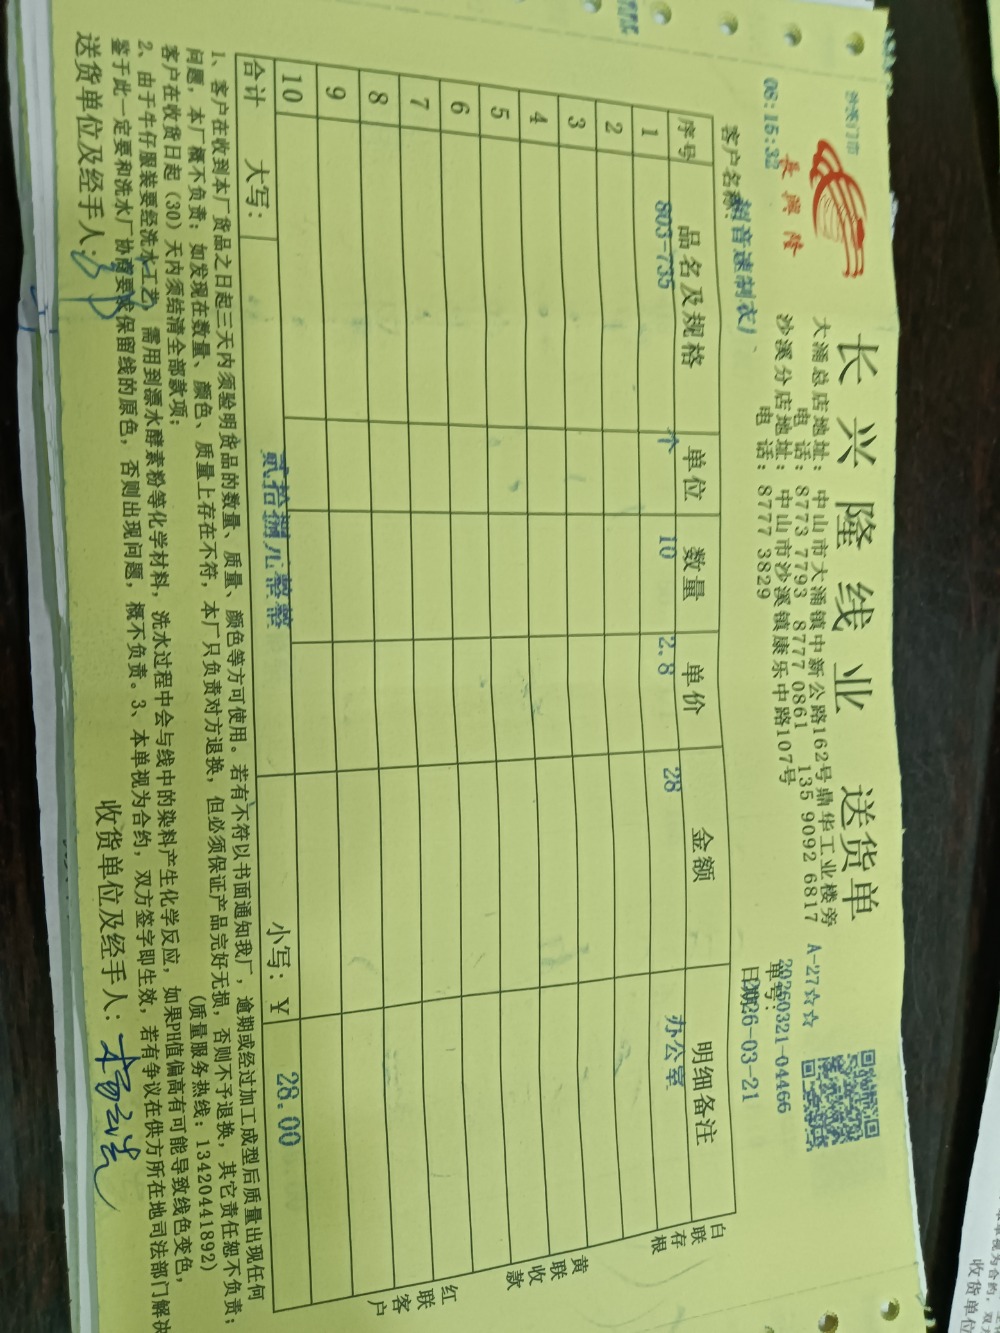 沙溪门市
長興隆
08:15:32
长兴隆线业 送货单
大涌总店地址：中山市大涌镇中新公路162号鼎华工业楼旁
电话：8773 7793 8777 0861 135 9092 6817
沙溪分店地址：中山市沙溪镇康乐中路107号
电话：8777 3829
A-27☆☆
单号：20260321-04466
日期：2026-03-21
客户名称：超音速制衣厂
序号 品名及规格 单位 数量 单价 金额 明细备注
1 803-735 个 10 2.8 28 办公室
2
3
4
5
6
7
8
9
10
合计 大写：贰拾捌元整整 小写：¥ 28.00
白联存根
黄联收款
红联客户
1、客户在收到本厂货品之日起三天内须验明货品的数量、质量、颜色等方可使用。若有不符以书面通知我厂，逾期或经过加工成型后质量出现任何
问题，本厂概不负责；如发现在数量、颜色、质量上存在不符，本厂只负责对方退换，但必须保证产品完好无损，否则不予退换，其它责任恕不负责；
客户在收货日起（30）天内须结清全部款项； （质量服务热线：13420441892）
2、由于牛仔服装要经洗水工艺，需用到漂水酵素粉等化学材料，洗水过程中会与线中的染料产生化学反应，如果PH值偏高有可能导致线色变色，
鉴于此一定要和洗水厂协商要求保留线的原色，否则出现问题，概不负责。3、本单视为合约，双方签字即生效，若有争议在供方所在地司法部门解决
送货单位及经手人： 收货单位及经手人：
收货单位